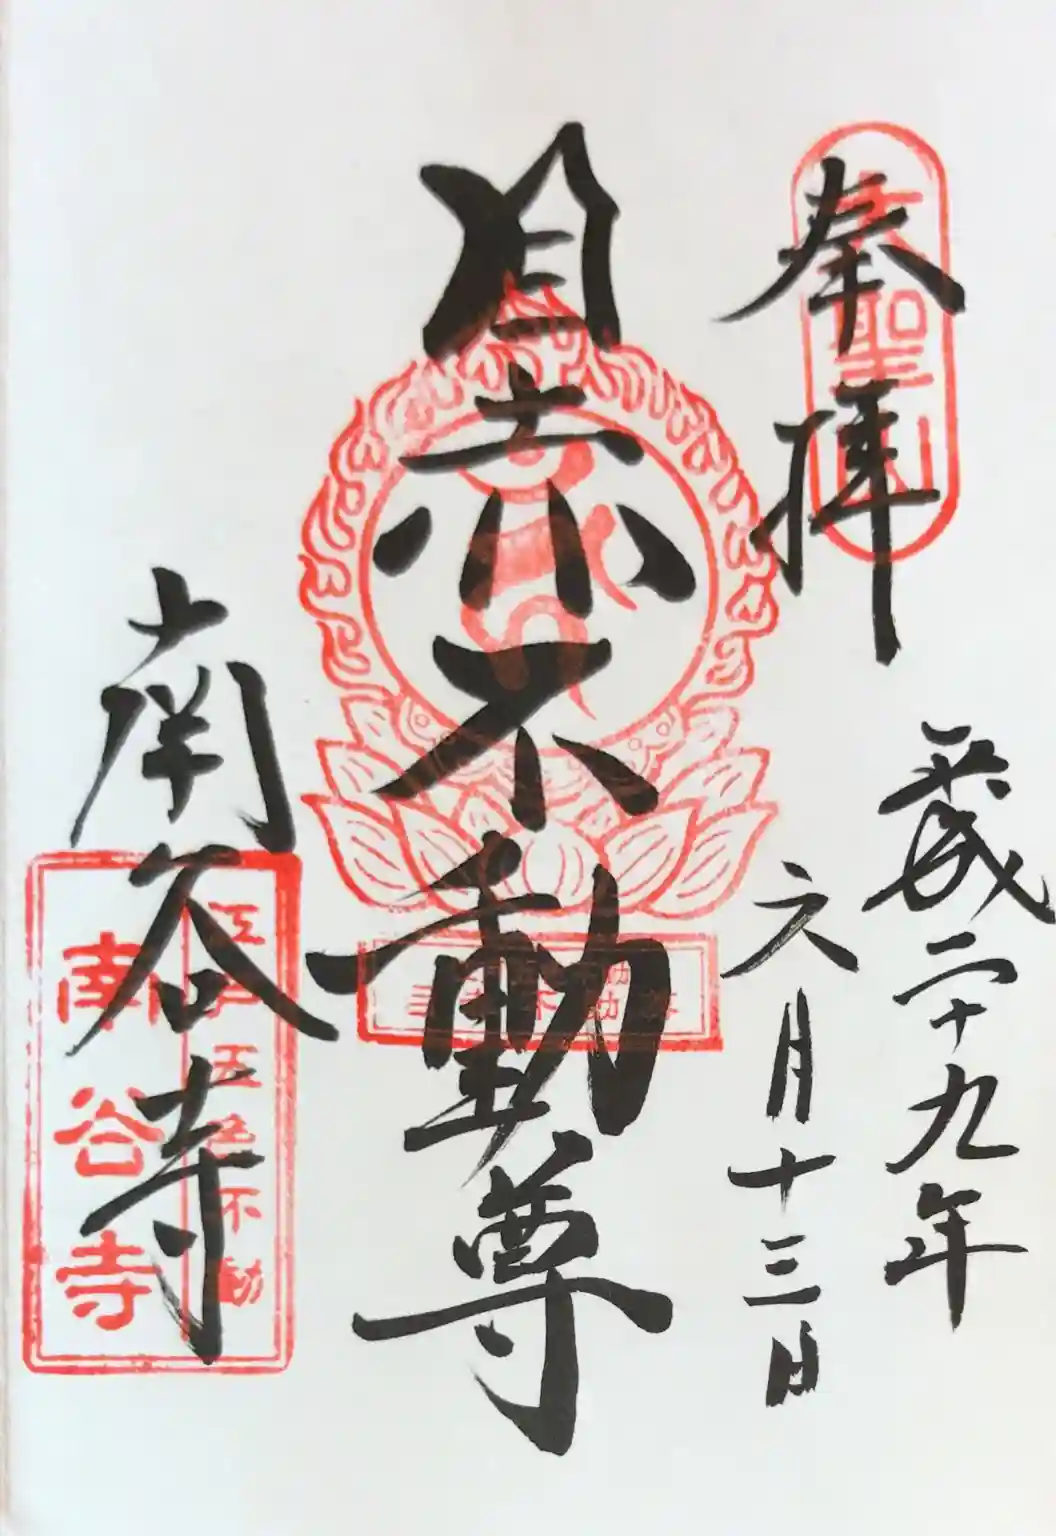 奉拝
大聖山
平成二十九年
六月十三日
目赤不動尊
南谷寺
江戸五色不動
南谷寺